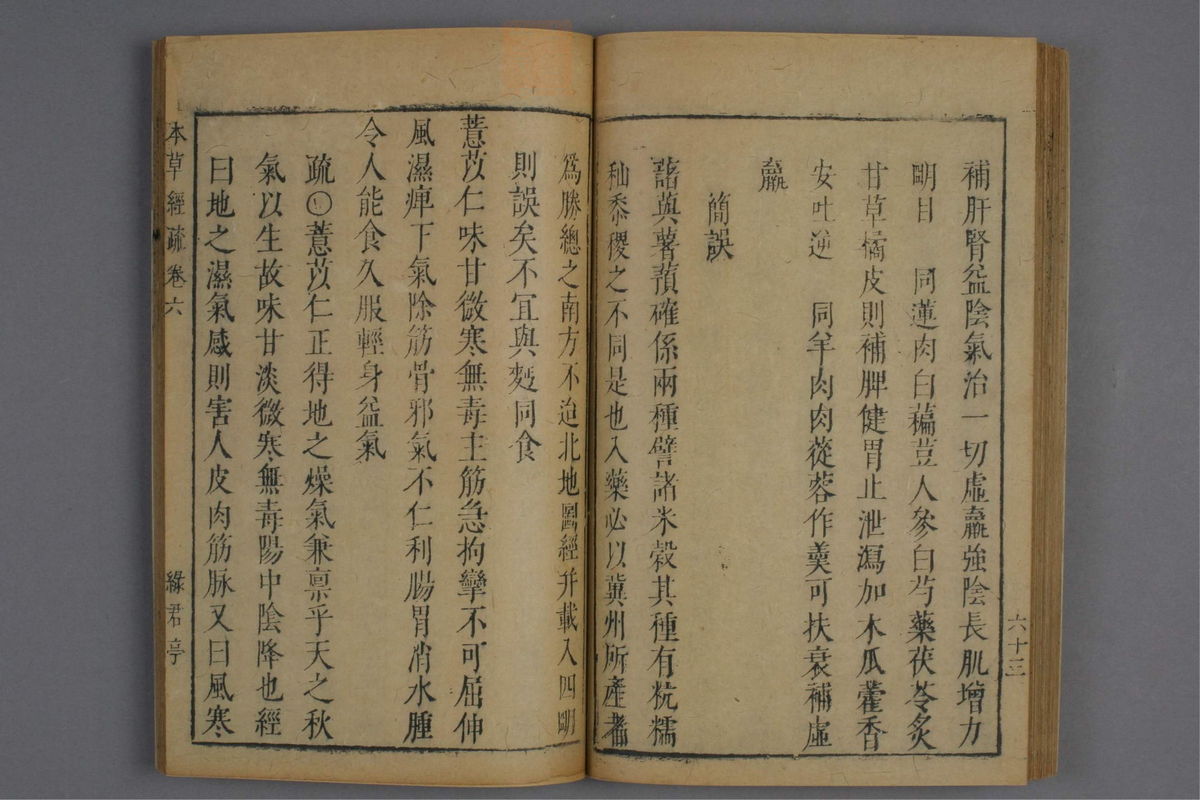 補肝腎益陰氣治一切虛羸強陰長肌增力
明目　同蓮肉白藊荳人參白芍藥茯苓炙
甘草橘皮則補脾健胃止泄瀉加木瓜藿香
安吐逆　同羊肉肉蓯蓉作羹可扶衰補虛
羸
簡誤
藷藇薯蕷確係兩種譬諸米穀其種有秔糯
秈黍稷之不同是也入藥必以冀州所產者
六十三
爲勝總之南方不迨北地圖經并載入四明
則誤矣不宜與麪同食
薏苡仁味甘微寒無毒主筋急拘攣不可屈伸
風濕痺下氣除筋骨邪氣不仁利腸胃消水腫
令人能食久服輕身益氣
疏○薏苡仁正得地之燥氣兼禀乎天之秋
氣以生故味甘淡微寒無毒陽中陰降也經
曰地之濕氣感則害人皮肉筋脉又曰風寒
本草經疏卷六
綠君亭